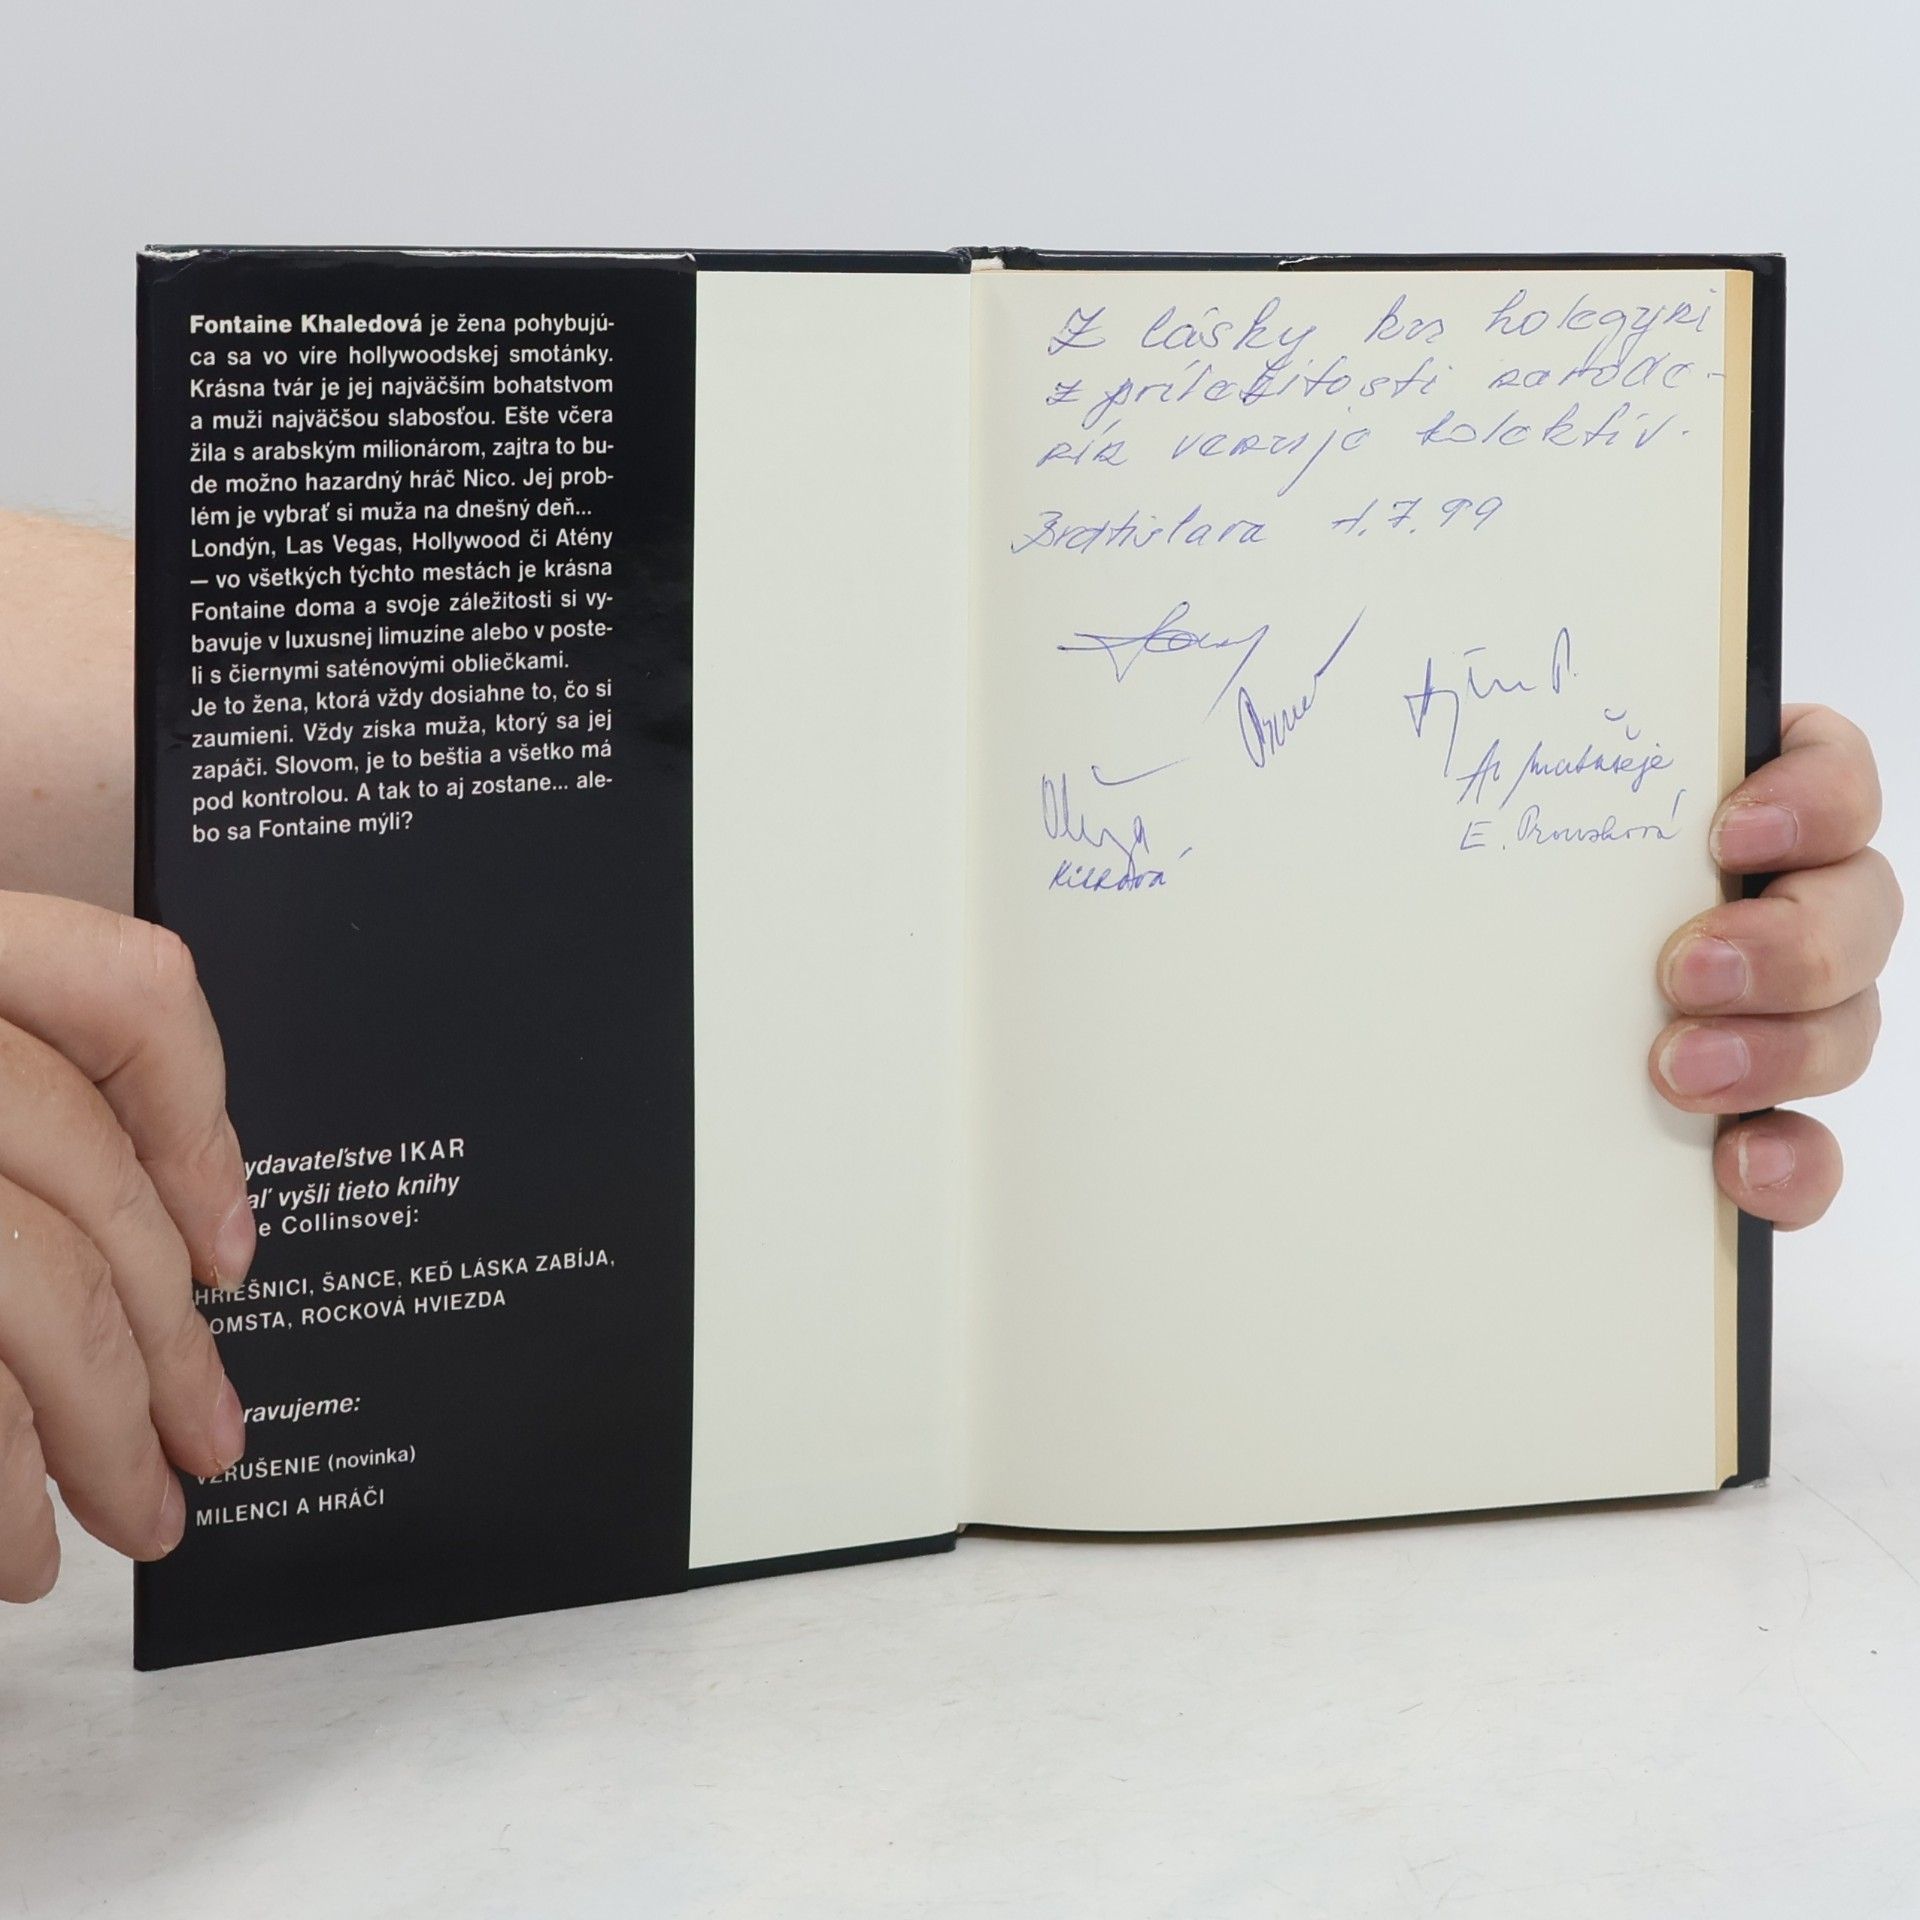 Fontaine Khaledová je žena pohybujú-
ca sa vo víre hollywoodskej smotánky.
Krásna tvár je jej najväčším bohatstvom
a muži najväčšou slabosťou. Ešte včera
žila s arabským milionárom, zajtra to bu-
de možno hazardný hráč Nico. Jej prob-
lém je vybrať si muža na dnešný deň...
Londýn, Las Vegas, Hollywood či Atény
— vo všetkých týchto mestách je krásna
Fontaine doma a svoje záležitosti si vy-
bavuje v luxusnej limuzíne alebo v poste-
li s čiernymi saténovými obliečkami.
Je to žena, ktorá vždy dosiahne to, čo si
zaumieni. Vždy získa muža, ktorý sa jej
zapáči. Slovom, je to beštia a všetko má
pod kontrolou. A tak to aj zostane... ale-
bo sa Fontaine mýli?
ydavateľstve IKAR
aľ vyšli tieto knihy
e Collinsovej:
HRIEŠNICI, ŠANCE, KEĎ LÁSKA ZABÍJA,
OMSTA, ROCKOVÁ HVIEZDA
ravujeme:
VZRUŠENIE (novinka)
MILENCI A HRÁČI
Z lásky ku kolegyni
z príležitosti narode-
nín venuje kolektív.
Bratislava 1.7.99
E.